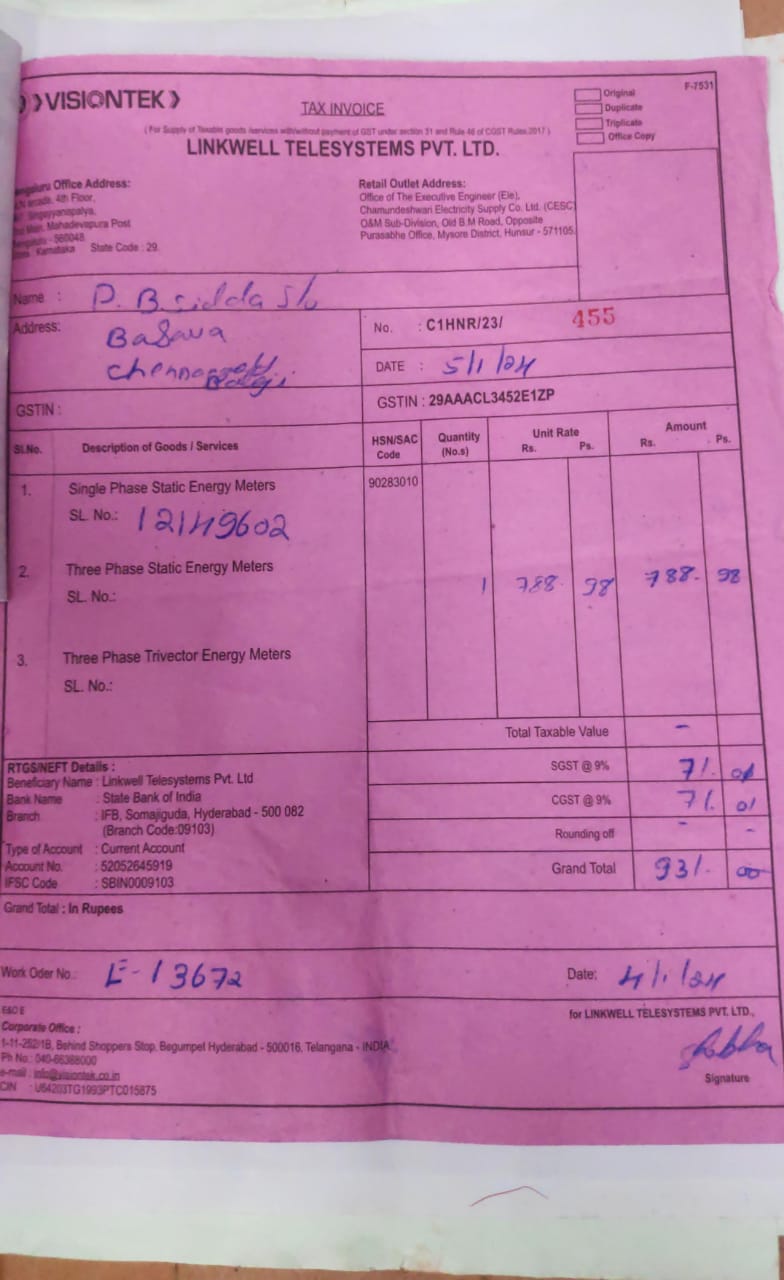 VISIONTEK
F-7531
TAX INVOICE
Original
Duplicate
Triplicate
Office Copy
( For Supply of Taxable goods /services with/without payment of GST under section 31 and Rule 46 of CGST Rules 2017 )
LINKWELL TELESYSTEMS PVT. LTD.
Office Address:
arcade, 4th Floor,
Singayyanapalya,
Main, Mahadevapura Post
- 560048
Karnataka State Code : 29.
Retail Outlet Address:
Office of The Executive Engineer (Ele),
Chamundeshwari Electricity Supply Co. Ltd. (CESC)
O&M Sub-Division, Old B.M Road, Opposite
Purasabhe Office, Mysore District, Hunsur - 571105.
Name : D. B. Sidda S/o
Address: Basava
No. : C1HNR/23/ 455
DATE : 5/1/24
GSTIN :
GSTIN : 29AAACL3452E1ZP
Sl.No. Description of Goods / Services HSN/SAC Code Quantity (No.s) Unit Rate Rs. Ps. Amount Rs. Ps.
1. Single Phase Static Energy Meters 90283010
SL. No.: 12149602
2. Three Phase Static Energy Meters 1 788. 98 788. 98
SL. No.:
3. Three Phase Trivector Energy Meters
SL. No.:
Total Taxable Value -
SGST @ 9% 71. 01
CGST @ 9% 71. 01
Rounding off - -
Grand Total 931. 00
RTGS/NEFT Details :
Beneficiary Name : Linkwell Telesystems Pvt. Ltd
Bank Name : State Bank of India
Branch : IFB, Somajiguda, Hyderabad - 500 082
(Branch Code:09103)
Type of Account : Current Account
Account No. : 52052645919
IFSC Code : SBIN0009103
Grand Total : In Rupees
Work Oder No.: E-13672
Date: 4/1/24
E&O E
for LINKWELL TELESYSTEMS PVT. LTD.,
Corporate Office :
1-11-252/1B, Behind Shoppers Stop, Begumpet Hyderabad - 500016, Telangana - INDIA
Ph No.: 040-66388000
e-mail : info@visiontek.co.in
CIN : U64203TG1993PTC015875
Shobha
Signature